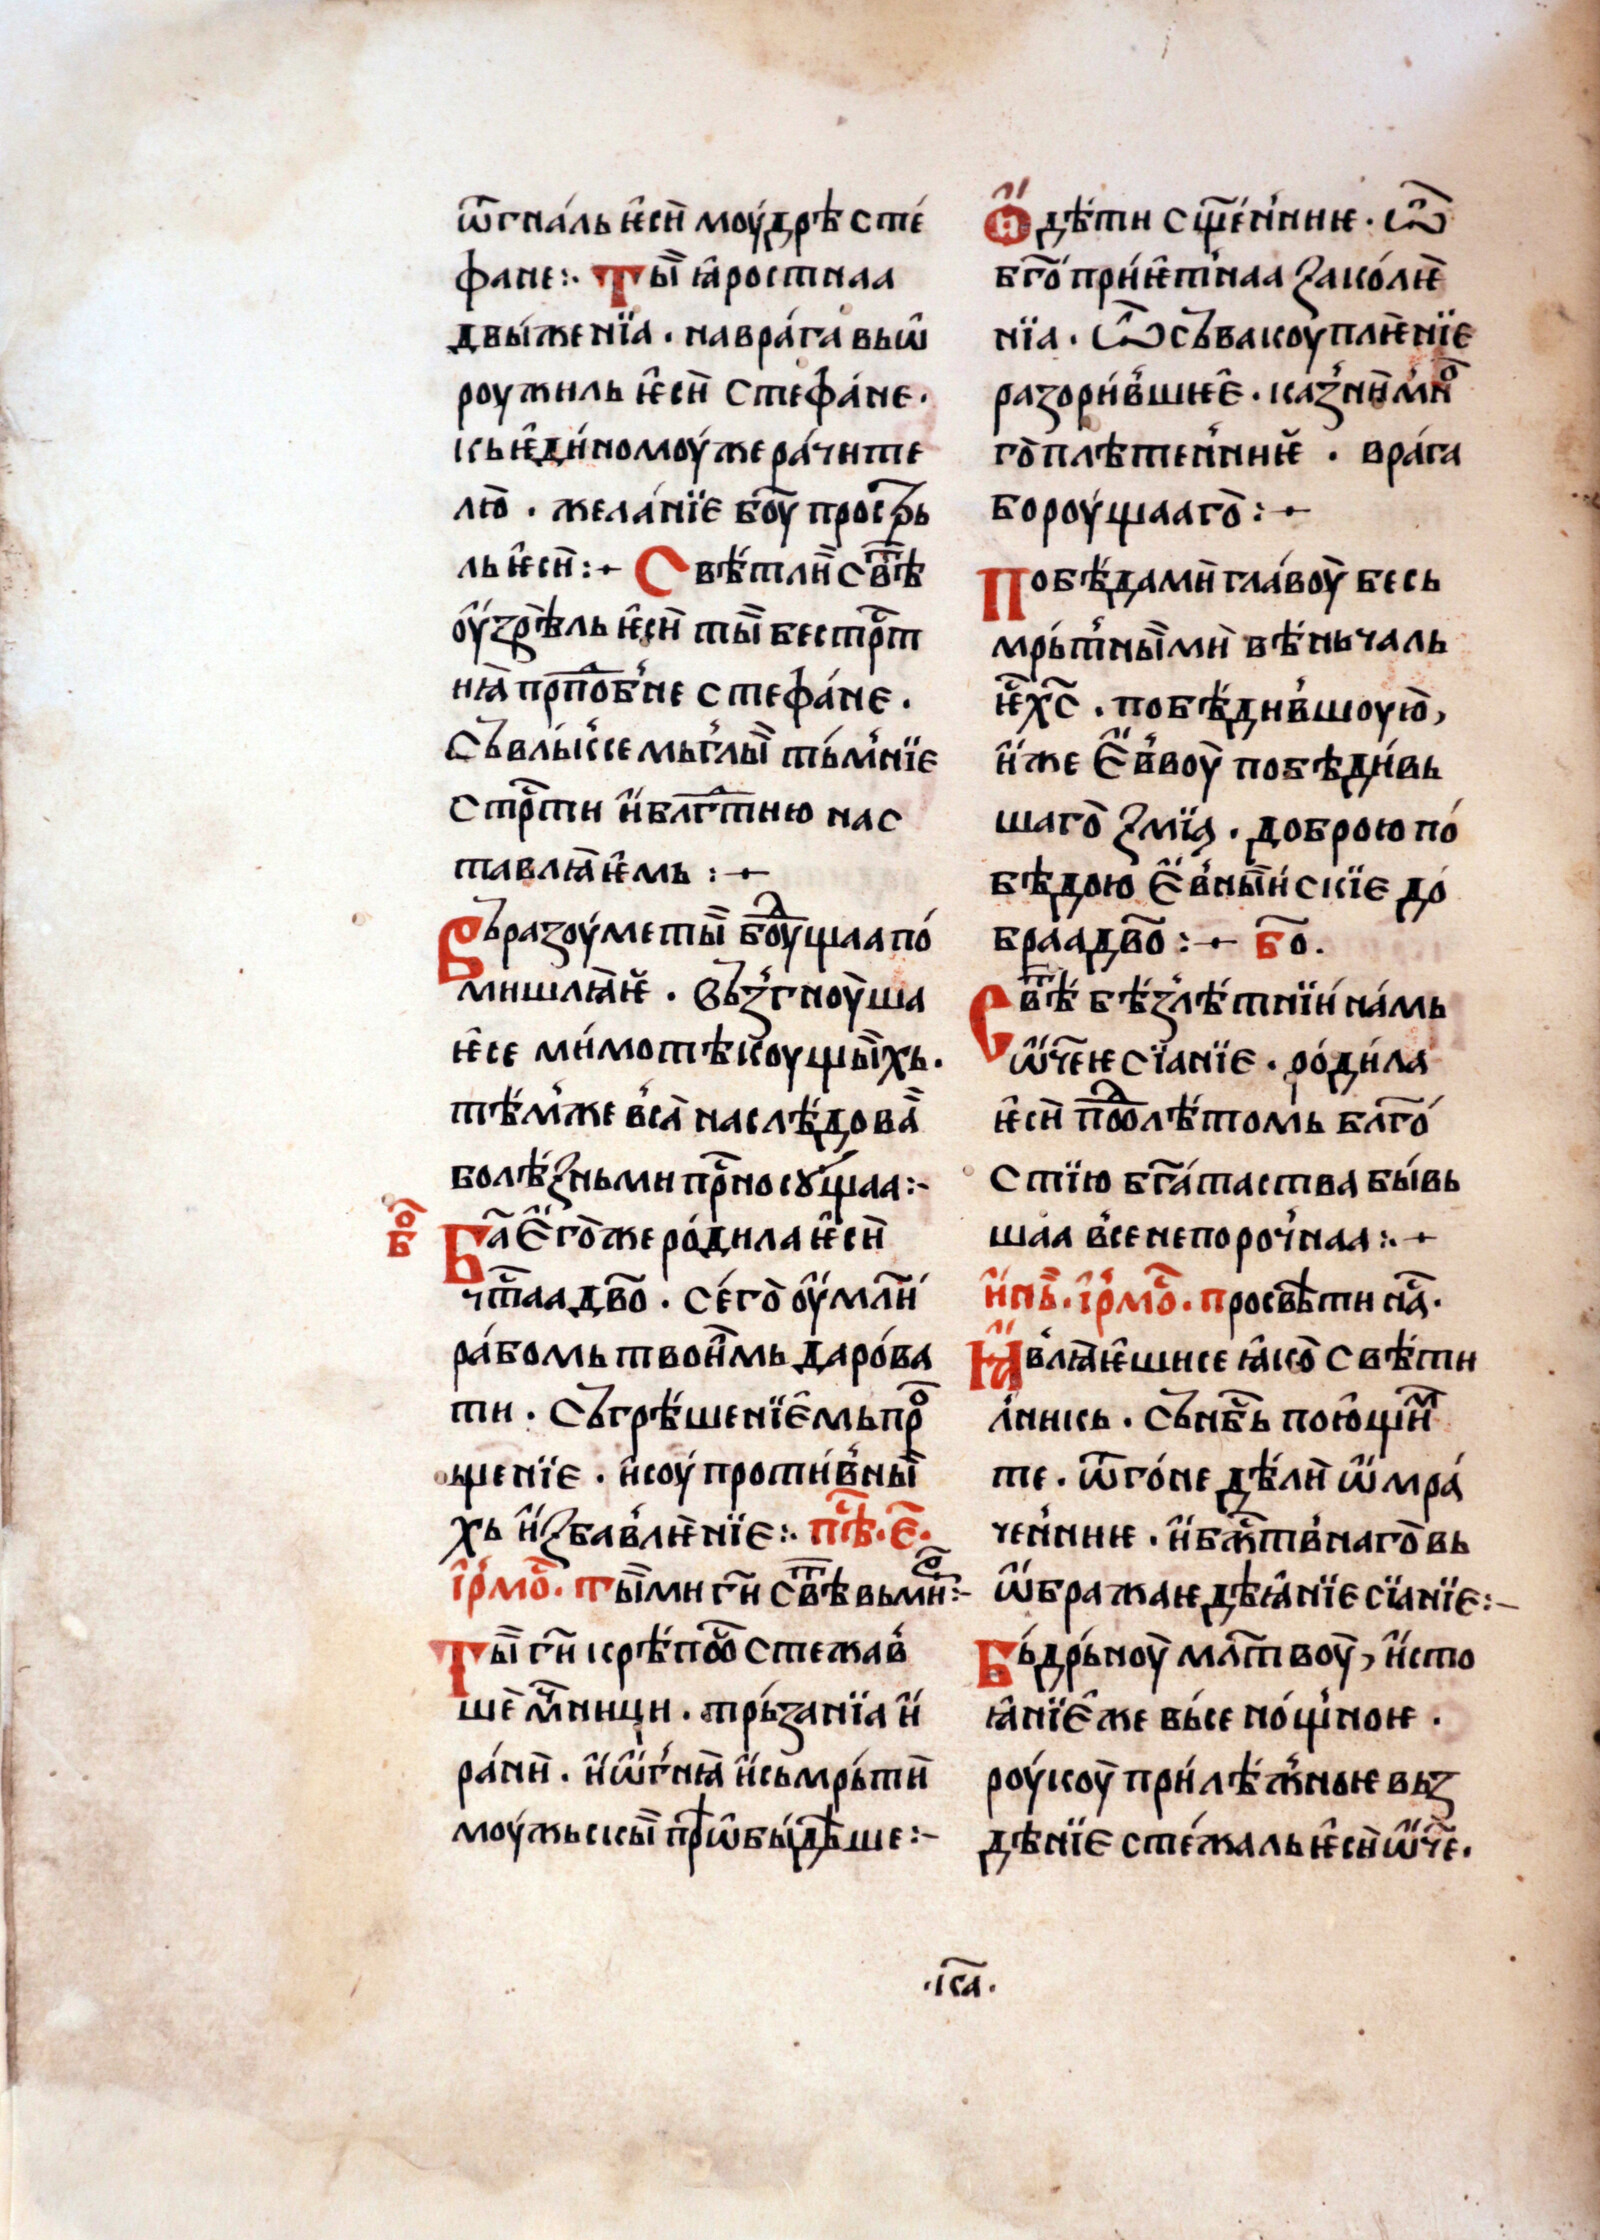 ѿгна́ль ѥ҆сѝ моу́дрѣ сте́
фане:· Ты̀ ꙗ҆ростнаа
двы́женїа · на вра́га въѡ
роужиль ѥ҆сѝ стефа́не ·
къ ѥ҆ди́номоу́же ра́чите
лю̀ · жела́нїє бо҃у̀ простръ
ль ѥ҆сѝ:·- Свѣ́тлѝ свⷮѣ
оу҆зрѣ̀ль ѥ҆сѝ ты̀ бестрⷭ҇т
нꙗ̀ прпⷣоб'не стефа́не ·
съвлы́к'се мьг'лы̀ ть́м'нїє
стрⷭ҇ти и҆ блгⷣтию нас
тавлꙗ́ѥ҆мь :·-
Съразоу́ме ты̀ боⷣу̀щаа по́
мишлꙗ́ѥ · въз'гноу̀ша
ѥ҆се ми́мотѣкоущы̀хь ·
тѣ́м'же в'сꙗ̀ наслѣ́довⷶ
болѣ́зньми прⷭ҇носꙋ́щаа:-
бⷪ҇
Бⷶ҇ Є҆го̀же ро́дила ѥ҆сѝ
чтⷭ҇аа дво҃ · се́го̀ оу҆млⷭ҇и́
ра́бомь твои̑мь даро́ва
ти · съгрѣ́шенїє҆мь прⷪ
щенїє · и҆соу́противны̀
хь и҆збав'лѥ́нїє:· пⷭ҇ѣ · є҃ ·
і҆р'мⷪ҇ · ты̀ ми гⷭ҇и свⷮѣ вь мⷩ҇ⷪ:-
Ты̀ гⷭ҇и крѣ́пⷭ҇о стежав'
ше м҃ч҃нци · трь́занїа и҆
ра́нѝ · и҆ѡ҆г'нꙗ̀ и҆сьмрь́тѝ
моу́жьскы̀ прѣ̑ѡ҆бы́дѣ̀ше:-
Ѻ҆дѣ́ти сщ҃е́н'ниѥ · ѿ
бг҃о́прі́ѥт'наа зако́лѥ̀
нїа · ѿсъвакоупл҄ѥ́нїє
разори́в'шиѥ̑ · каз'нѝ мнⷪ
го̀плѣтен'ниѥ̀ · вра́га
бороу́щааго̀:·-
Побѣ́дамѝ гла́воу̀ бесь
мрь́т'ны̀мѝ вѣ́ньчаль
ѥ҆ х҃с · побѣ́див'шоую̀,
и҆же Є҆в'воу̀ побѣди́вь
шаго̀ змїа · доброю по́
бѣдою Є҆в'ны̀нскїє до́
браа дво҃:·- бо҃ ·
Свⷮѣ́ бѣ́з'лѣ́тнїи́ на́мь
ѿ҆ч҃еѥ сїанїє · ро́дила
ѥ҆сѝ поⷣлѣтомь бл҃го́
стїю бг҃а́таства бы́вь
шаа в'се непороч'наа:·-
и҆нь̀ · і҆р'мⷪ҇ · просвѣти на́ⷭ҇ ·
Ꙗ҆в'лꙗ́ѥ҆ши се ꙗ҆ко̀ свѣ́ти
л'никь · съ нбⷭ҇ь пою҆щиⷨ
те · ѿго́не дѣ́лѝ ѡ҆мра́
чен'ниѥ · и҆бжⷭ҇тв'наго̀ вь
ѡ҆бражаѥ дѣꙗ҆нїє сїанїє:-
Бь́дрь́ноу̀ млтⷡ҇воу̀, и҆сто
ꙗ҆нїє҆же вь́се но́щ'ноѥ ·
роу́коу̀ при́лѣ́ж'ноѥ вьз
дѣ́нїє сте́жаль ѥ҆сѝ ѡ҆ч҃е ·
·к҃а·